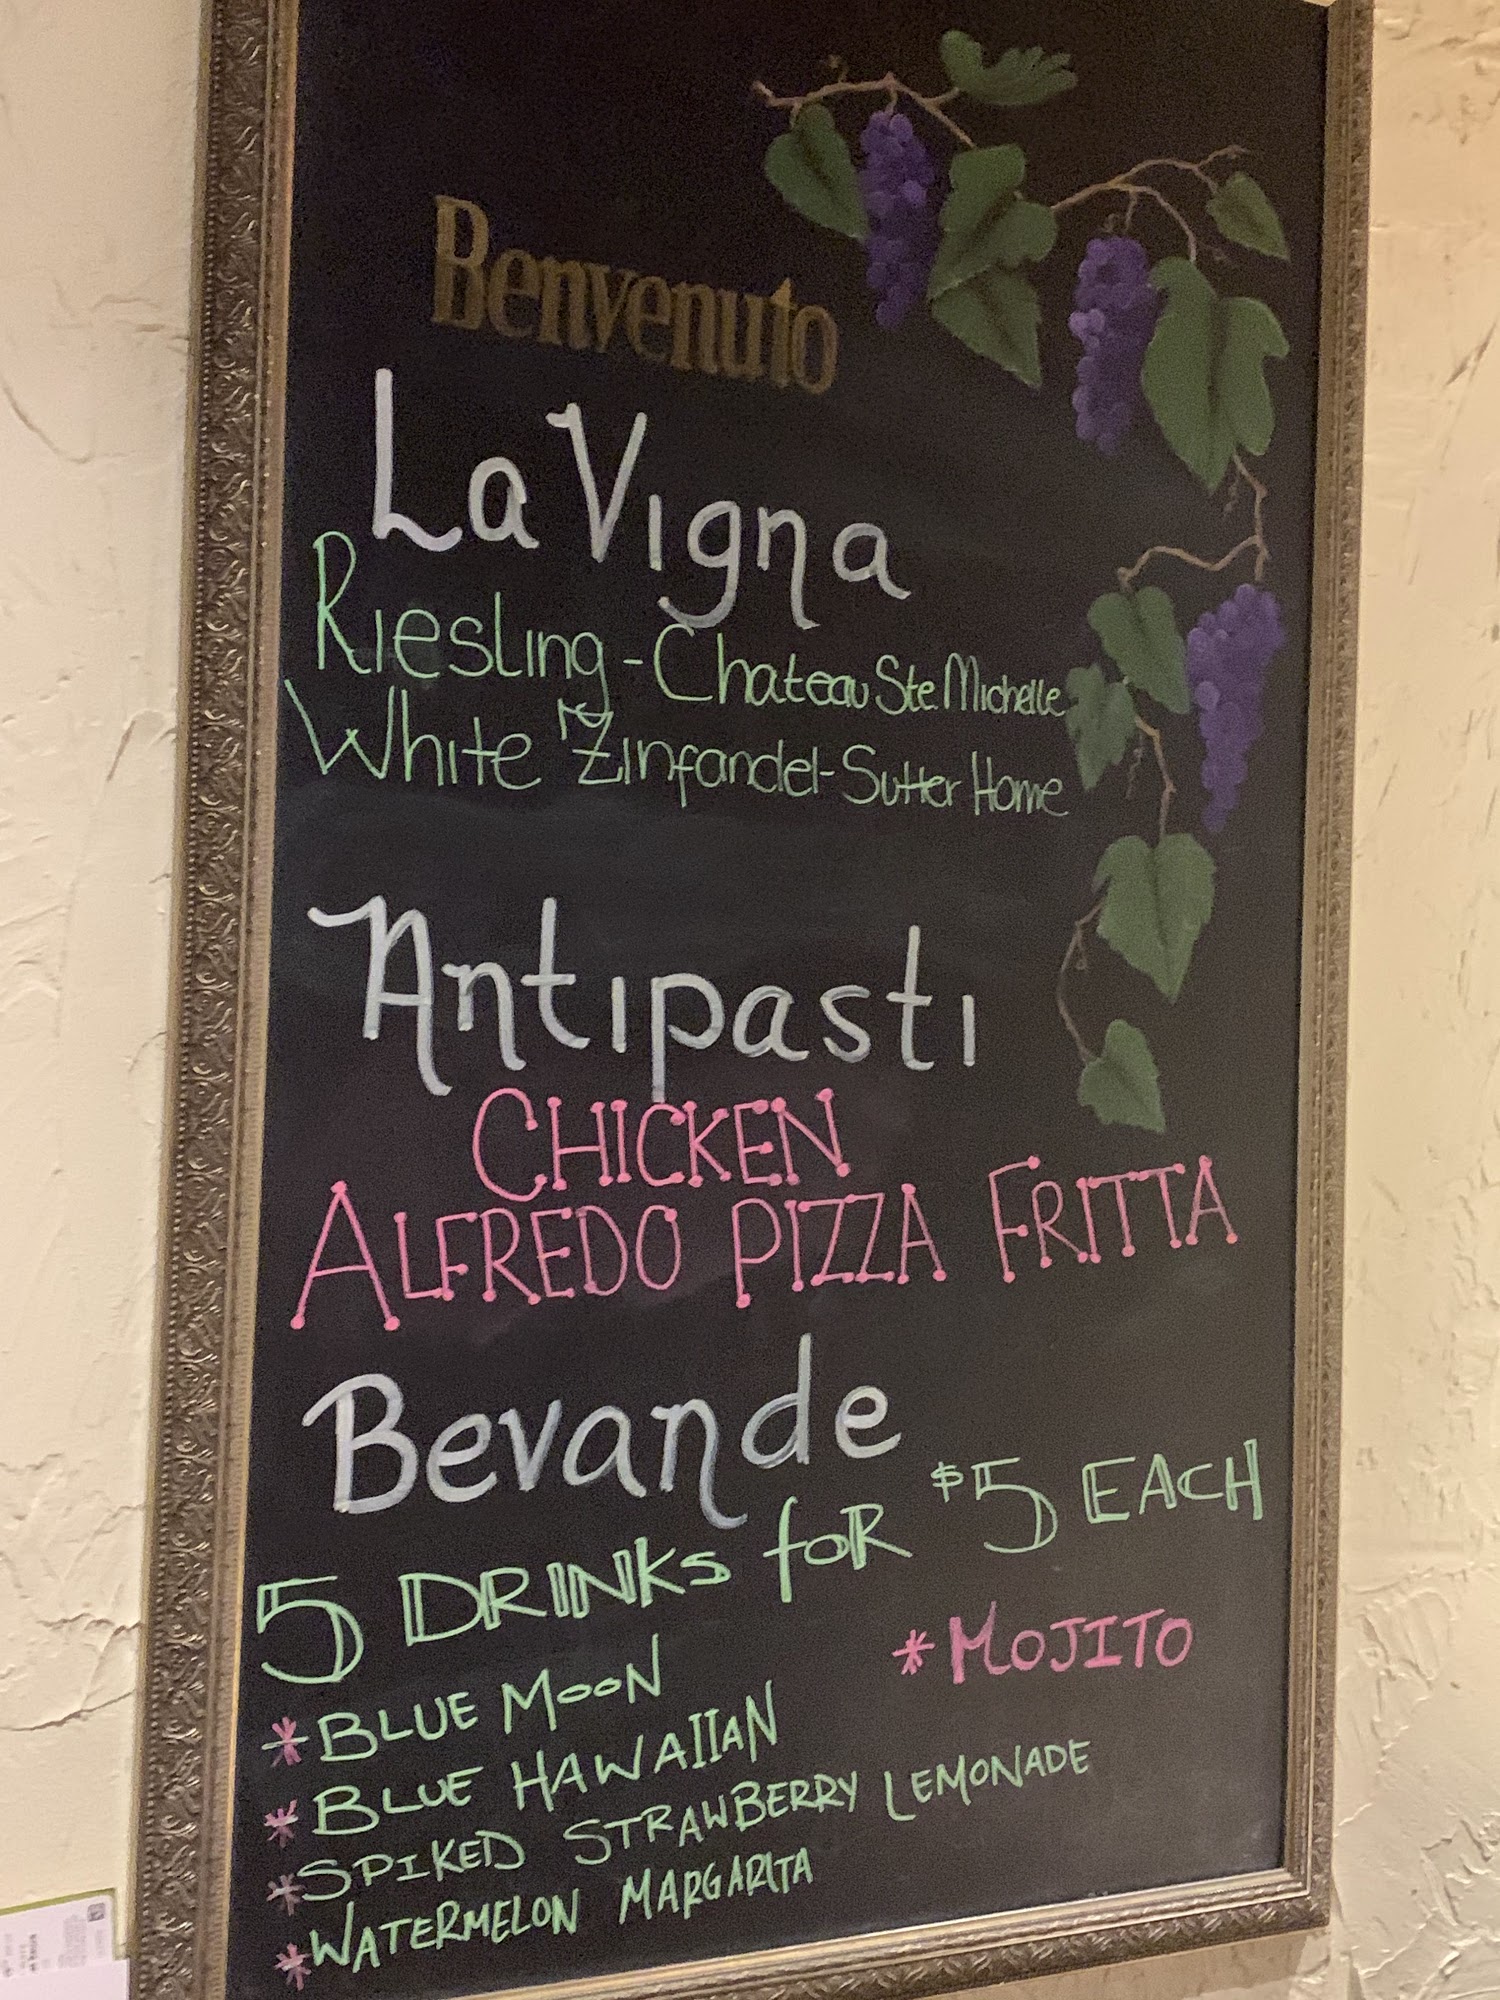 Benvenuto
La Vigna
Riesling - Chateau Ste. Michelle
White Zinfandel - Sutter Home
Antipasti
CHICKEN
ALFREDO PIZZA FRITTA
Bevande
5 DRINKS foR $5 EACH
* BLUE MOON
* MOJITO
* BLUE HAWAIIAN
* SPIKED STRAWBERRY LEMONADE
* WATERMELON MARGARITA